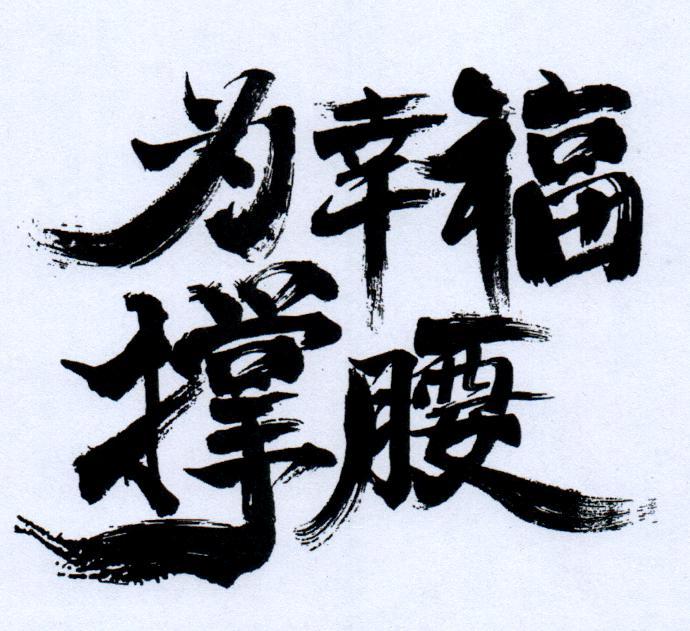 为幸福
撑腰